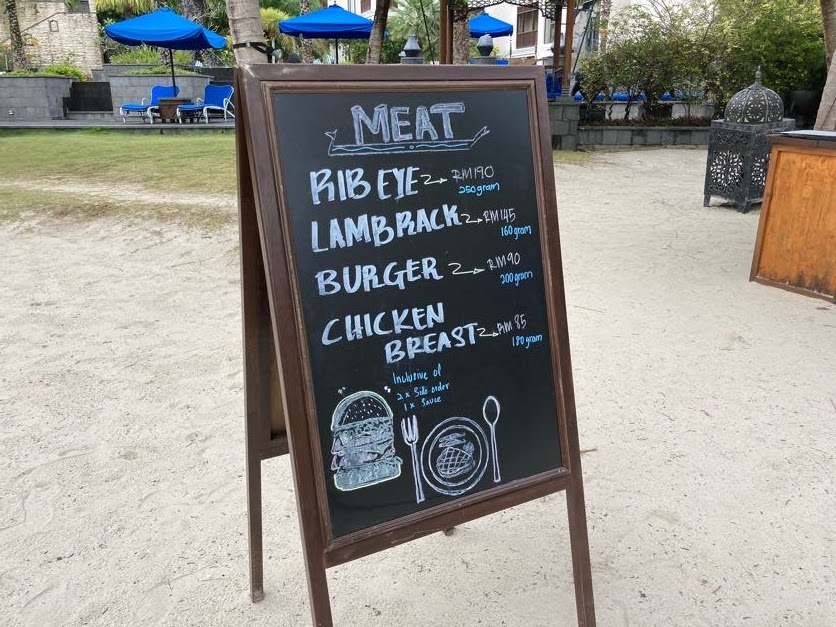 MEAT
RIB EYE RM190
250gram
LAMB RACK RM145
160gram
BURGER RM90
200gram
CHICKEN
BREAST RM 85
180gram
Inclusive of
2 x Side order
1 x Sauce